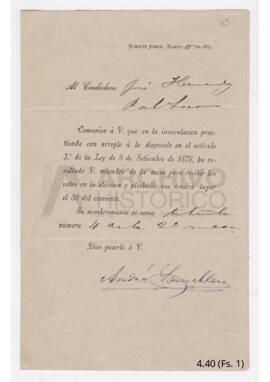 Buenos Aires, Marzo de 187
Al Ciudadano José Hernandez
Comunico á V. que en la insaculacion prac-
ticada con arreglo á lo dispuesto en el artículo
3.° de la Ley de 9 de Setiembre de 1878, ha re-
sultado V. miembro de la mesa para recibir los
votos en la eleccion y plebiscito que tendrá lugar
el 30 del corriente.
Su nombramiento es como titular
número 4 de la 2ª mesa
Dios guarde á V.
ARCHIVO
HISTORICO
4.40 (Fs. 1)